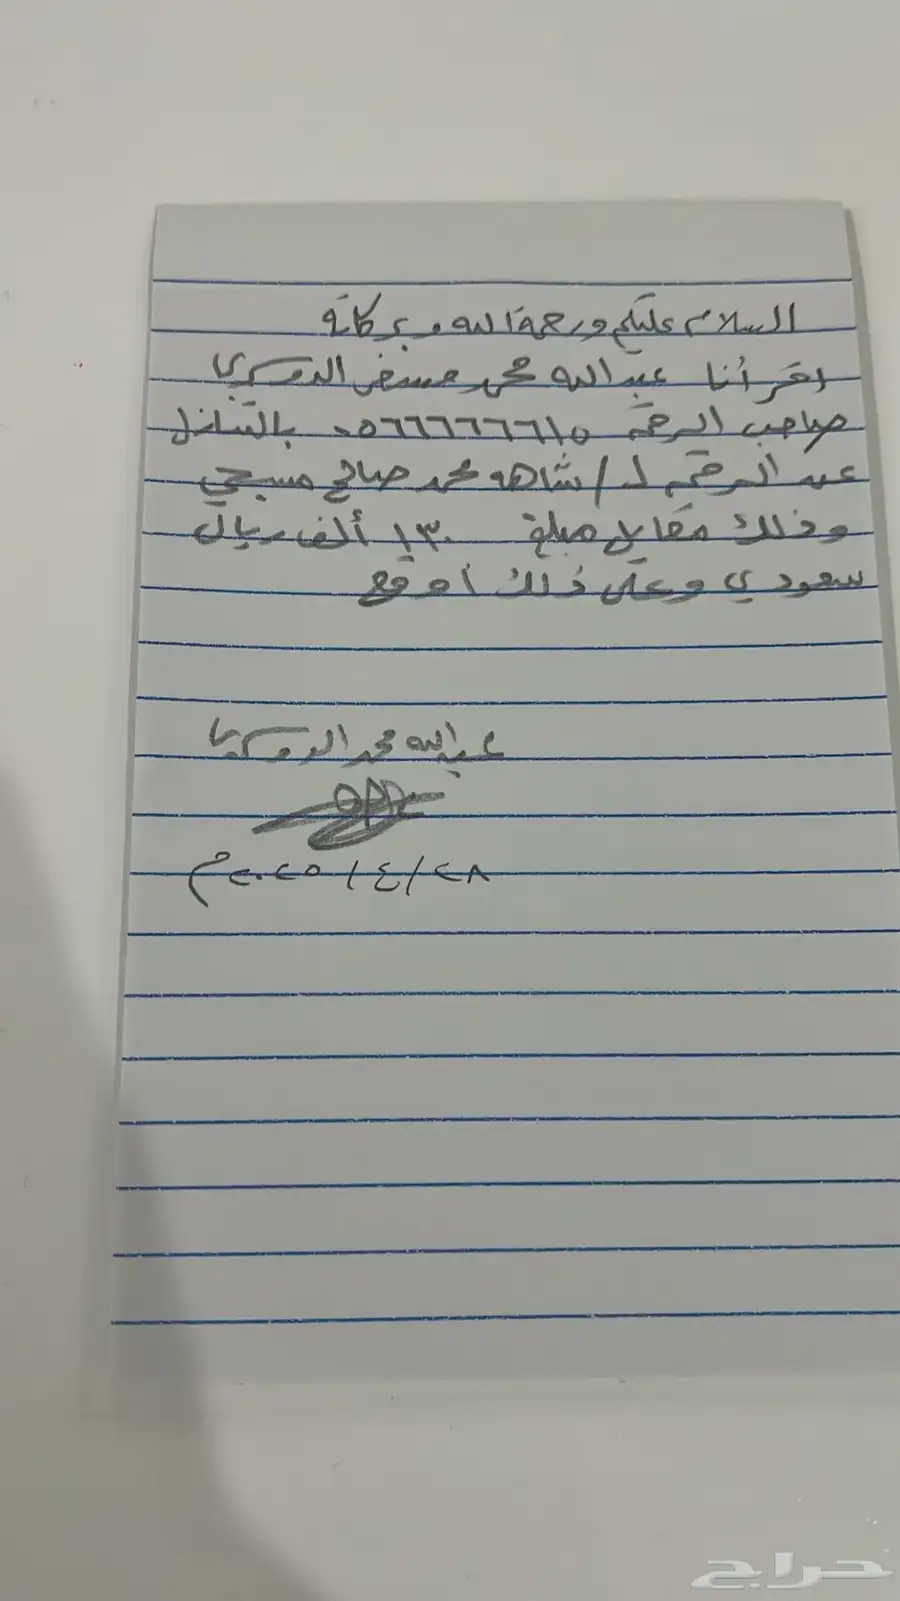 السلام عليكم ورحمة الله وبركاتة
اقر أنا عبدالله محمد مسفر الدوسري
صاحب الرقم ٠٥٦٦٦٦٦٦١٥ بالتنازل
عن الرقم لـ / شاهه محمد صالح
وذلك مقابل مبلغ ١٣٠ ألف ريال
سعودي وعلى ذلك أوقع
عبدالله محمد الدوسري
٢٨/٤/٢٠٢٥م
حراج